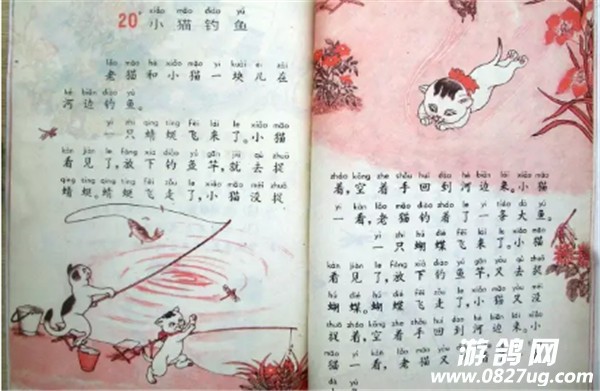 20 xiǎo māo diào yú
小猫钓鱼
lǎo māo hé xiǎo māo yí kuài ér zài
老猫和小猫一块儿在
hé biān diào yú
河边钓鱼。
yì zhī qīng tíng fēi lái le xiǎo māo
一只蜻蜓飞来了。小猫
kàn jiàn le fàng xià diào yú gān jiù qù zhuō
看见了,放下钓鱼竿,就去捉
qīng tíng qīng tíng fēi zǒu le xiǎo māo méi zhuō
蜻蜓。蜻蜓飞走了,小猫没捉
zháo kōng zhe shǒu huí dào hé biān lái xiǎo māo
着,空着手回到河边来。小猫
yí kàn lǎo māo diào zháo le yì tiáo dà yú
一看,老猫钓着了一条大鱼。
yì zhī hú dié fēi lái le xiǎo māo
一只蝴蝶飞来了。小猫
kàn jiàn le fàng xià diào yú gān yòu qù zhuō
看见了,放下钓鱼竿,又去捉
hú dié hú dié fēi zǒu le xiǎo māo yòu méi
蝴蝶。蝴蝶飞走了,小猫又没
zhuō zháo kōng zhe shǒu huí dào hé biān lái xiǎo
捉着,空着手回到河边来。小
māo yí kàn lǎo māo yòu
猫一看,老猫又
游鸽网
www.0827ug.com